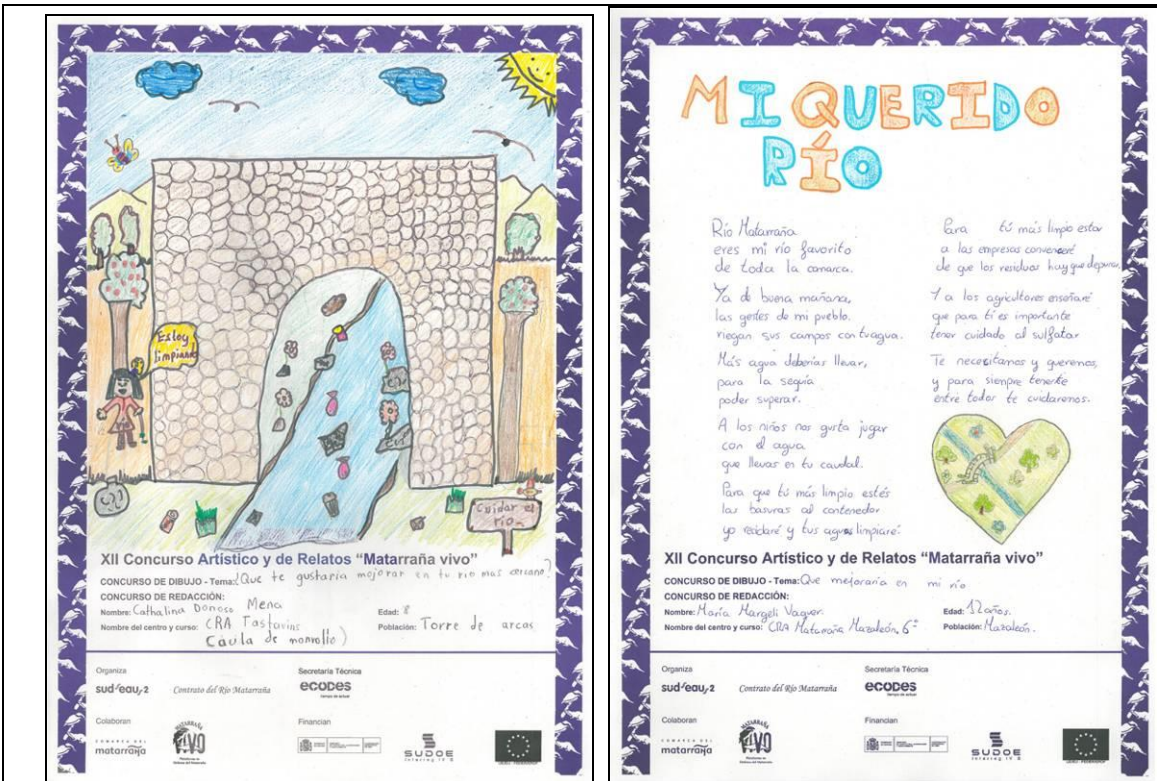 Estoy
limpiando
Cuidar el
río.
XII Concurso Artístico y de Relatos “Matarraña vivo”
CONCURSO DE DIBUJO - Tema: ¿Que te gustaría mejorar en tu rio mas cercano?
CONCURSO DE REDACCIÓN:
Nombre: Cathalina Donoso Mena
Edad: 8
Nombre del centro y curso: CRA Tastavins
Población: Torre de arcas
Organiza
Secretaría Técnica
sud'eau, 2
Contrato del Río Matarraña
ecodes
tiempo de actuar
Colaboran
Financian
COMARCA DEL
matarraña
MATARRAÑA
VIVO
SUDOE
Interreg IV B
MI QUERIDO
RÍO
Río Matarraña
eres mi río favorito
de toda la comarca.
Ya de buena mañana,
las gentes de mi pueblo.
riegan sus campos con tu agua.
Más agua deberías llevar,
para la sequía
poder superar.
A los niños nos gusta jugar
con el agua
que llevas en tu caudal.
Para que tú más limpio estés
las basuras al contenedor
yo reciclaré y tus aguas limpiaré.
Para tú más limpio estar
a las empresas convenceré
de que los residuos hay que depurar.
Y a los agricultores enseñaré
que para tí es importante
tener cuidado al sulfatar
Te necesitamos y queremos,
y para siempre tenerte
entre todos te cuidaremos.
XII Concurso Artístico y de Relatos “Matarraña vivo”
CONCURSO DE DIBUJO - Tema: Que mejoraría en mi río
CONCURSO DE REDACCIÓN:
Nombre: María Margelí Vaquer.
Edad: 12 años.
Nombre del centro y curso: CRA Matarraña Mazaleón, 6º
Población: Mazaleón.
Organiza
Secretaría Técnica
sud'eau, 2
Contrato del Río Matarraña
ecodes
tiempo de actuar
Colaboran
Financian
COMARCA DEL
matarraña
MATARRAÑA
VIVO
SUDOE
Interreg IV B